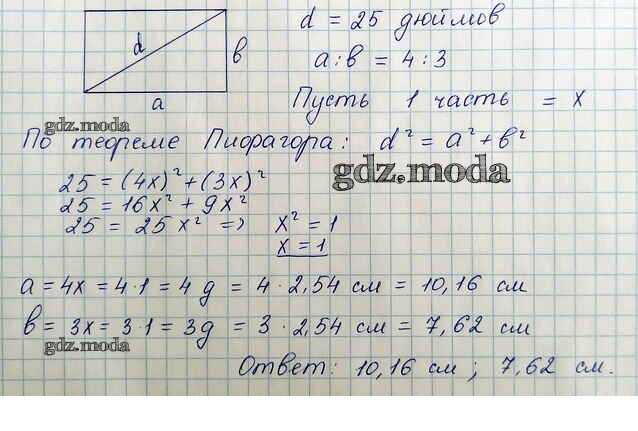 d = 25 дюймов
d
в
a : в = 4 : 3
a
Пусть 1 часть = x
gdz.moda
По теореме Пифрагора: d² = a² + в²
gdz.moda
25 = (4x)² + (3x)²
25 = 16x² + 9x²
25 = 25x² => x² = 1
x = 1
a = 4x = 4·1 = 4 g = 4 · 2,54 см = 10,16 см
в = 3x = 3·1 = 3g = 3 · 2,54 см = 7,62 см
gdz.moda
Ответ: 10,16 см ; 7,62 см.